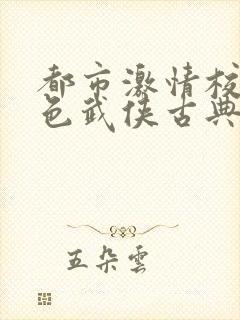 都市激情校
色武侠古典
五朵雲